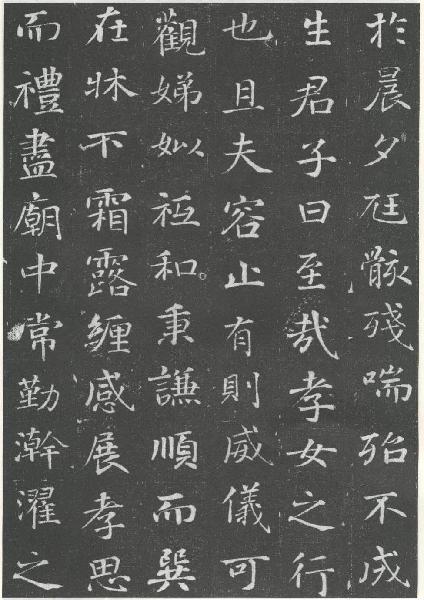 於晨夕尫骸殘喘殆不成
生君子曰至哉孝女之行
也且夫容止有則威儀可
觀娣姒祗和秉謙順而巽
在牀下霜露纏感展孝思
而禮盡廟中常勤澣濯之